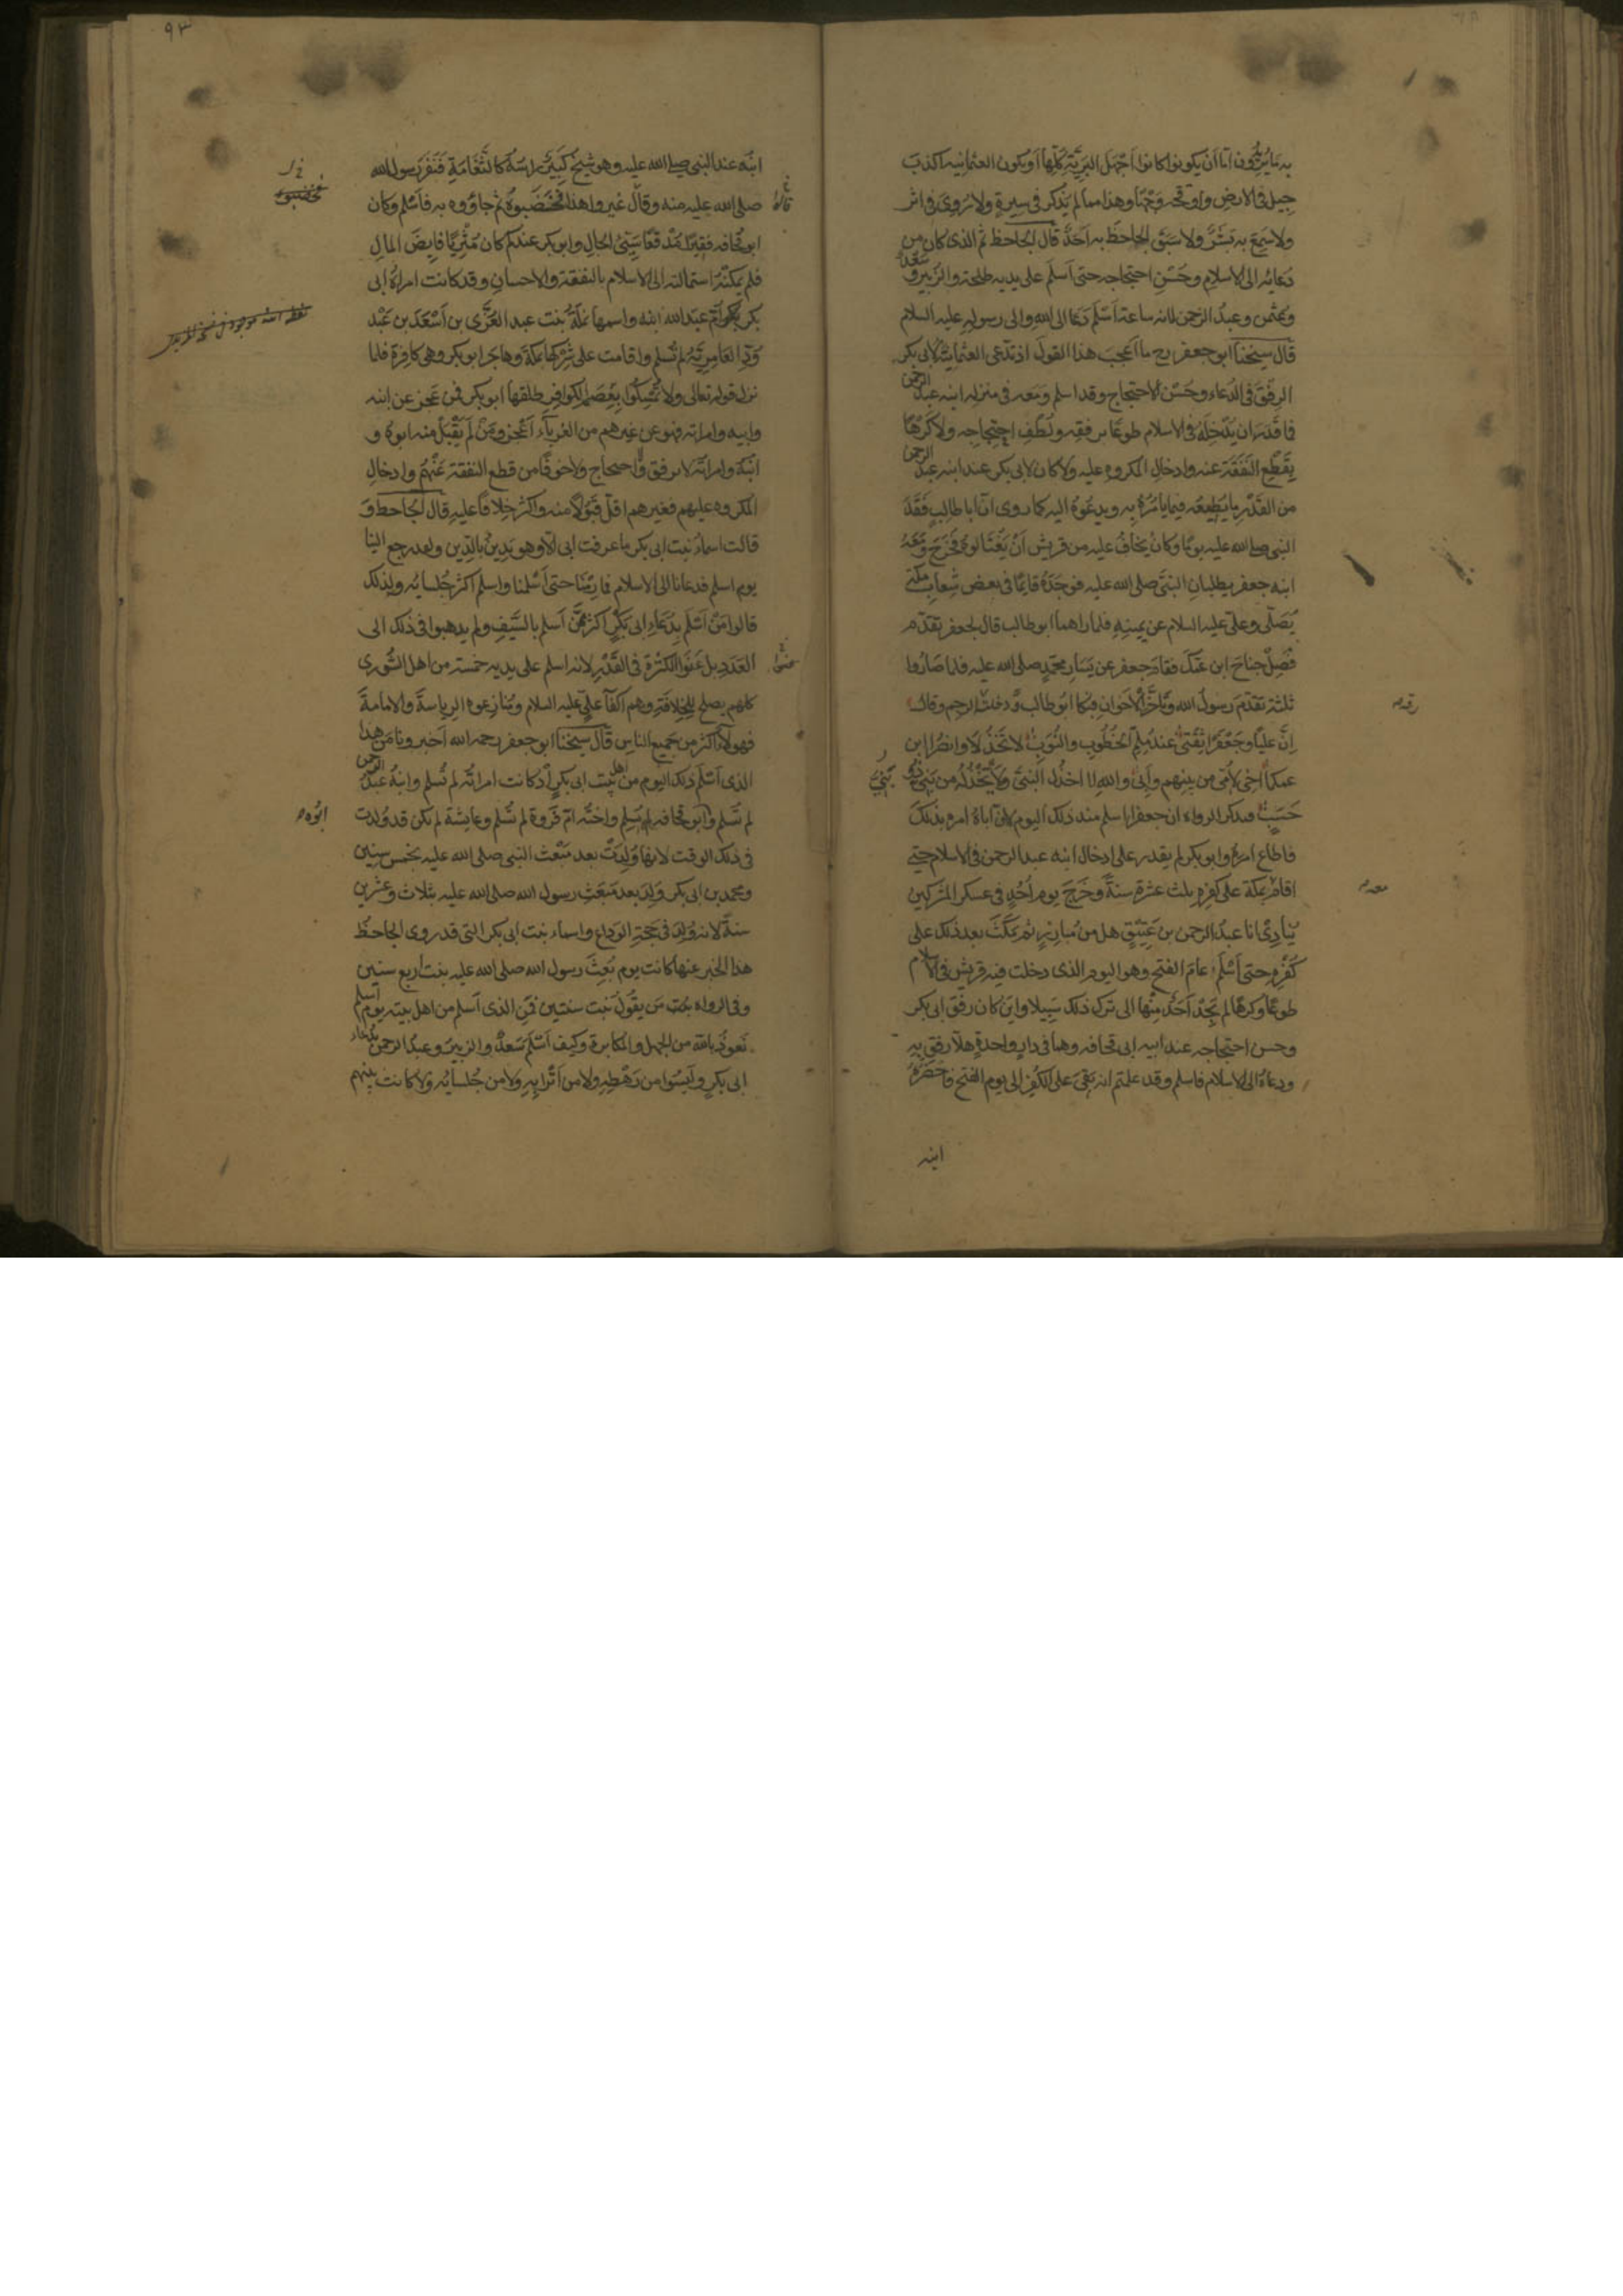 به ما يرون اما ان يكونوا كانوا اجهل البرية كلها او يكون العثمانيه اكذب
جيل فى الارض واوقحه وجها وهذا مما لم يذكر فى سيرة ولا روى فى اثر
ولا سمع به بشر ولا سبق الجاحظ به احد قال الجاحظ ثم الذى كان من
دعائه الى الاسلام وحسن احتجاجه حتى اسلم على يديه طلحة والزبير وسعد
وعثمن وعبد الرحمن لانه ساعة اسلم دعا الى الله والى رسوله عليه السلام
قال شيخنا ابو جعفر رح ما اعجب هذا القول اذ تدعى العثمانية لابى بكر
الرفق فى الدعاء وحسن الاحتجاج وقد اسلم ومعه فى منزله ابنه عبد الرحمن
فما قدر ان يدخله فى الاسلام طوعا برفقه ولطف احتجاجه ولا كرها
بقطع النفقة عنه وادخال المكروه عليه ولا كان لابى بكر عند ابنه عبد الرحمن
من القدر ما يطيعه فيما يامره به ويدعوه اليه كما روى ان ابا طالب فقد
النبى صلى الله عليه يوما وكان يخاف عليه من قريش ان يغتالوه فخرج ومعه
ابنه جعفر يطلبان النبى صلى الله عليه فوجده قائما فى بعض شعاب مكة
يصلى وعلى عليه السلام عن يمينه فلما راهما ابو طالب قال لجعفر تقدم
فصل جناح ابن عمك فقام جعفر عن يسار محمد صلى الله عليه فلما صاروا
ثلثة تقدم رسول الله وتاخر الاخوان فبكا ابو طالب وقال
ان عليا وجعفرا ثقتى عند ملم الخطوب والنوب لا تخذلا وانصرا ابن
عمكما اخى لامى من بينهم وابى والله لا اخذل النبى ولا يخذله من بنى ذو
حسب فيذكر الرواه ان جعفرا اسلم منذ ذلك اليوم لان اباه امره بذلك
فاطاع امره وابو بكر لم يقدر على ادخال ابنه عبد الرحمن فى الاسلام حتى
اقام بمكة على كفره ثلث عشرة سنة وخرج يوم احد فى عسكر المشركين
ينادى انا عبد الرحمن بن عتيق هل من مبارز ثم مكث بعد ذلك على
كفره حتى اسلم عام الفتح وهو اليوم الذى دخلت فيه قريش فى الاسلام
طوعا وكرها لم يجد احد منها الى ترك ذلك سبيلا واين كان رفق ابى بكر
وحسن احتجاجه عند ابيه ابى قحافه وهما فى دار واحدة هلا رفق به
ودعاه الى الاسلام فاسلم وقد علمتم انه بقى على الكفر الى يوم الفتح فاحضره
ابنه
٩٣
ابنه عند النبى صلى الله عليه وهو شيخ كبير راسه كالثغامة فنفر رسول الله
صلى الله عليه منه وقال غيروا هذا فخضبوه ثم جاؤوه به فاسلم وكان
ابو قحافه فقيرا مدقعا سيئ الحال وابو بكر عندكم كان مثريا فايض المال
فلم يمكنه استمالته الى الاسلام بالنفقة والاحسان وقد كانت امراة ابى
بكر ام عبد الله ابنه واسمها نملة بنت عبد العزى بن اسعد بن عبد
ود العامرية لم تسلم واقامت على شركها بمكة وهاجر ابو بكر وهى كافرة فلما
نزل قوله تعالى ولا تمسكوا بعصم الكوافر طلقها ابو بكر فمن عجز عن ابنه
وابيه وامراته فهو عن غيرهم من الغرباء اعجز ومن لم يقبل منه ابوه و
ابنه وامراته لا برفق واحتجاج ولا خوفا من قطع النفقة عنهم وادخال
المكروه عليهم فغيرهم اقل قبولا منه واكثر خلافا عليه قال الجاحظ و
قالت اسماء بنت ابى بكر ما عرفت ابى الا وهو يدين بالدين ولقد رجع الينا
يوم اسلم فدعانا الى الاسلام فما رمنا حتى اسلمنا واسلم اكثر جلسائه ولذلك
قالوا من اسلم بدعاء ابى بكر اكثر ممن اسلم بالسيف ولم يذهبوا فى ذلك الى
العدد بل عنوا الكثرة فى القدر لانه اسلم على يديه خمسة من اهل الشورى
كلهم يصلح للخلافة وهم اكفا على عليه السلام ومنازعوه الرياسة والامامة
فهولاء اكثر من جميع الناس قال شيخنا ابو جعفر رحمه الله اخبرونا من هذا
الذى اسلم ذلك اليوم من اهل بيت ابى بكر اذ كانت امراته لم تسلم وابنه عبد الرحمن
لم يسلم وابو قحافه لم يسلم واخته ام فروة لم تسلم وعايشة لم تكن قد ولدت
ابوه
فى ذلك الوقت لانها ولدت بعد مبعث النبى صلى الله عليه بخمس سنين
ومحمد بن ابى بكر ولد بعد مبعث رسول الله صلى الله عليه بثلاث وعشرين
سنة لانه ولد فى حجة الوداع واسماء بنت ابى بكر التى قد روى الجاحظ
هذا الخبر عنها كانت يوم بعث رسول الله صلى الله عليه بنت اربع سنين
وفى الرواه من يقول بنت سنتين فمن الذى اسلم من اهل بيته يوم اسلم
نعوذ بالله من الجهل والمكابرة وكيف اسلم سعد والزبير وعبد الرحمن بدعاء
ابى بكر وليسوا من رهطه ولا من اترابه ولا من جلسائه ولا كانت بينهم